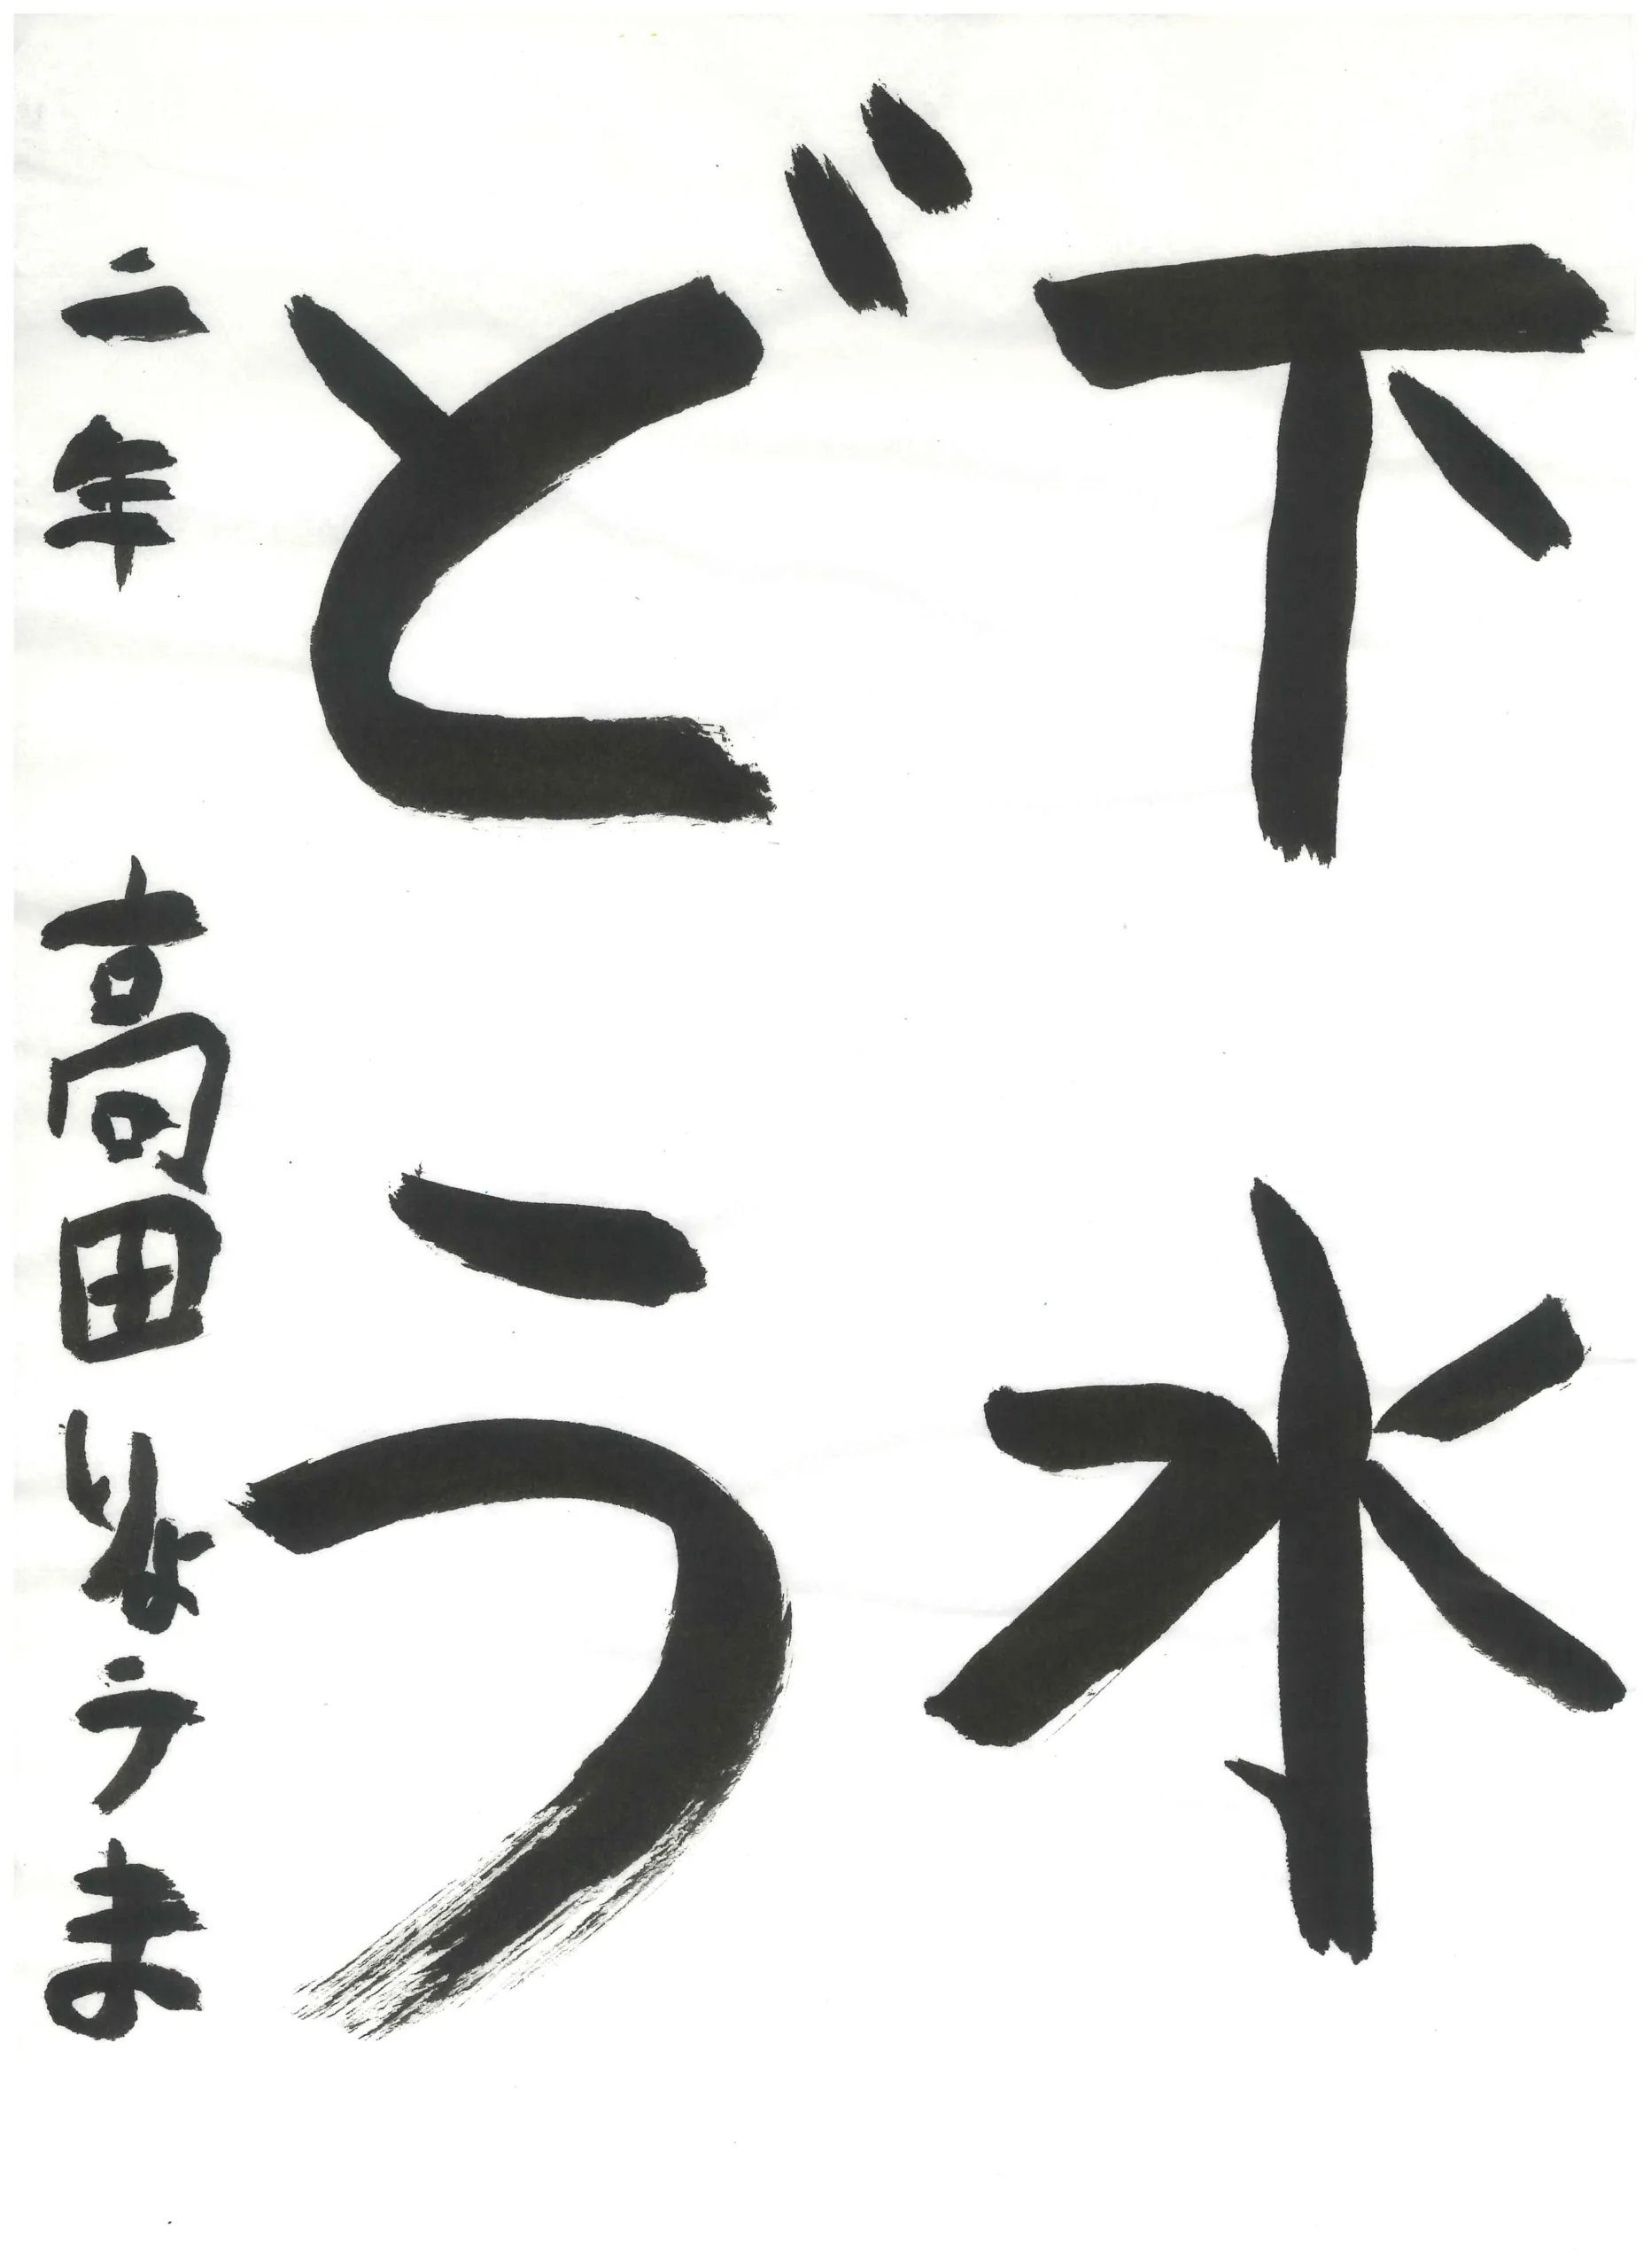 下水
どう
二年 高田 りょうま